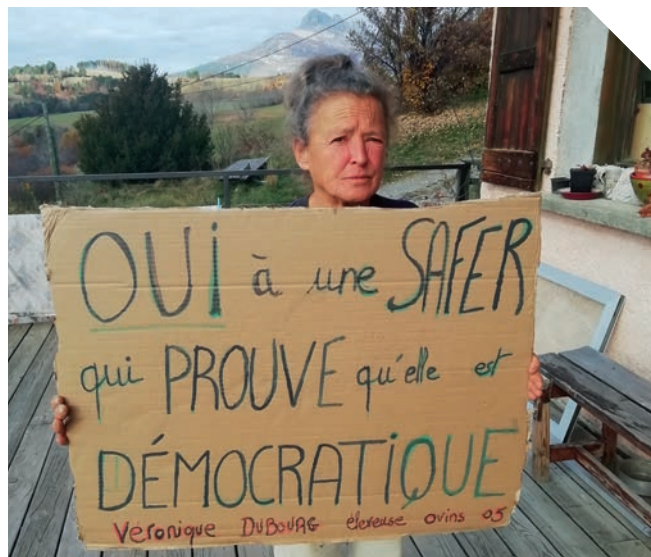 OUI à une SAFER
qui PROUVE qu'elle est
DÉMOCRATIQUE
Véronique DUBOURG éleveuse ovins 05